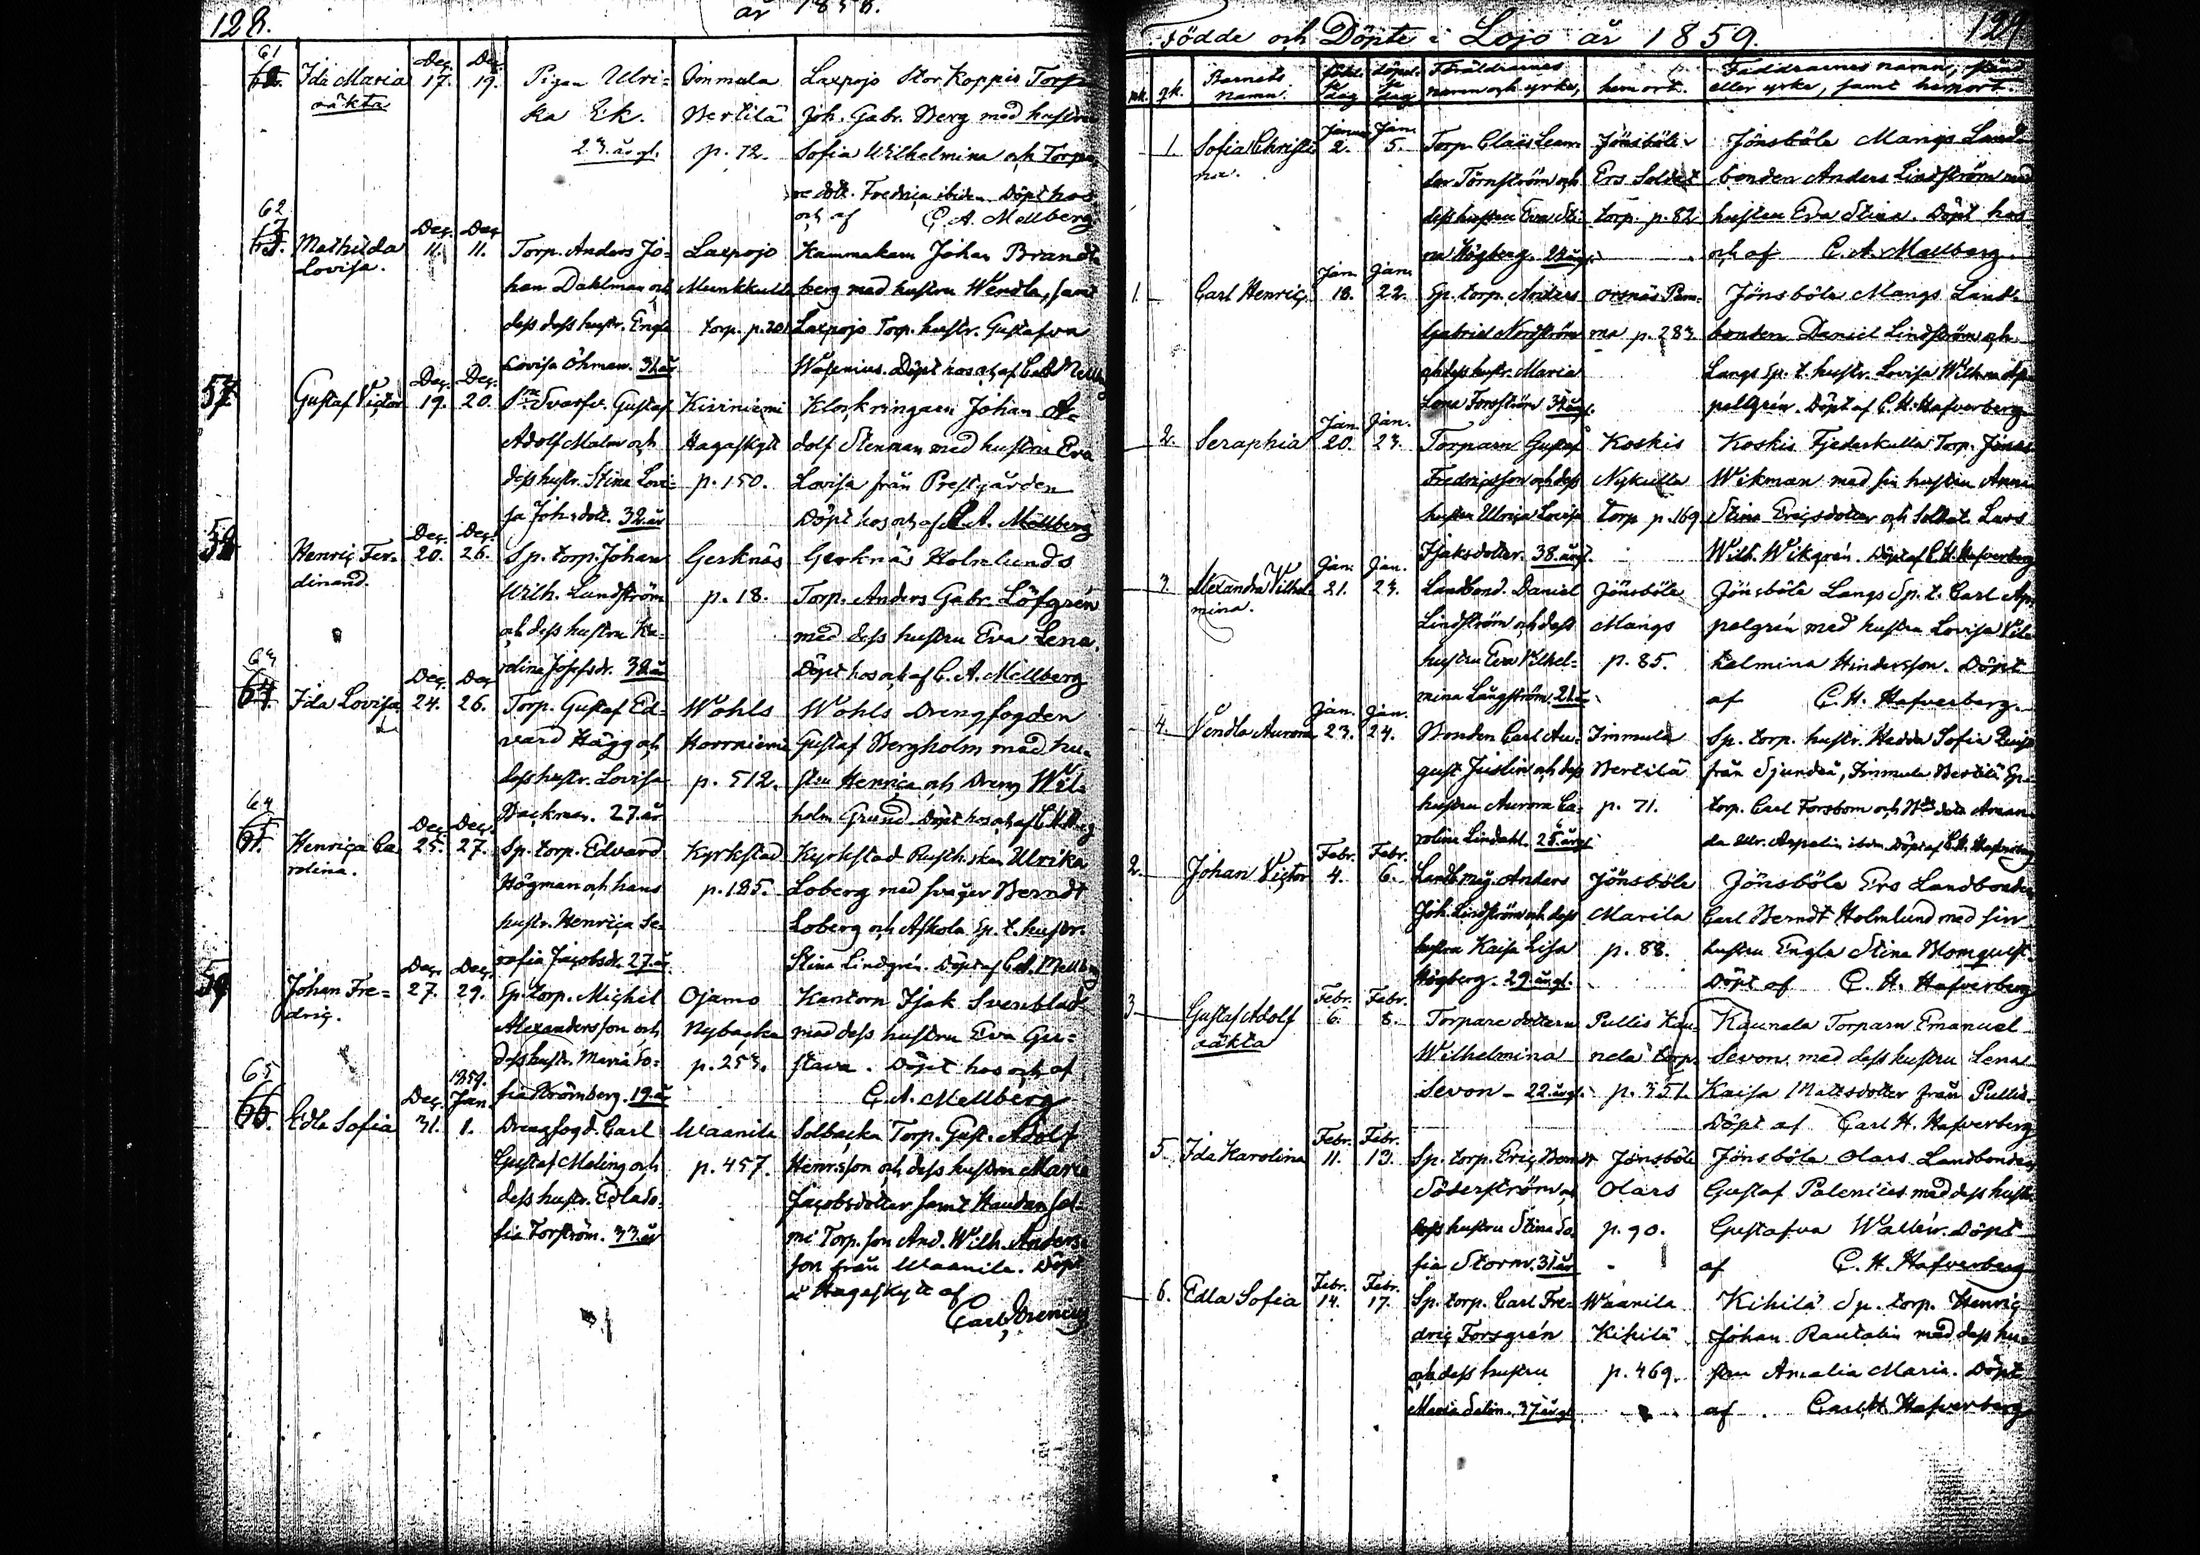 128.
år 1858.
61
Ida Maria
oäkta
Dec. 17.
Dec. 19.
Pigan Ulri-
ka Ek.
23. år gl.
Immula
Bertilä
p. 72.
Laxpojo Stor Koppis Torp
Joh. Gabr. Berg med hustru
Sofia Wilhelmina och Torpa-
re dott. Fredrica ibidem Döpt hos
och af C. A. Mellberg
62
Mathilda
Lovisa.
Dec. 11.
Dec. 11.
Torp. Anders Jo-
han Dahlman och
dess hustr. Engla
Lovisa Öhman. 31 år
Laxpojo
Munkkulla
torp. p. 201
Kammakaren Johan Brandt-
berg med hustru Wendla, samt
Laxpojo Torp. hustr. Gustafva
Wasenius. Döpt hos och af
57.
Gustaf Victor
Dec. 19.
Dec. 20.
Svarfv. Gustaf
Adolf Malm och
dess hustr. Stina Lovi-
sa Joh:dott. 32 år
Kiviniemi
Hagaskytt
p. 150.
Klockringaren Johan A-
dolf Stenman med hustru Eva
Lovisa från Prestgården
Döpt hos och af C. A. Mellberg
58
Henric Fer-
dinand.
Dec. 20.
Dec. 26.
Sp. torp. Johan
Wilh. Lundström
och dess hustru Ka-
rolina Josefsdr. 38 år
Gerknäs
p. 18.
Gerknäs Holmlunds
Torp. Anders Gabr. Löfgrén
med dess hustru Eva Lena.
Döpt hos och af C. A. Mellberg
63
64.
Ida Lovisa
Dec. 24.
Dec. 26.
Torp. Gustaf Ed-
vard Hägg och
dess hustr. Lovisa
Backman. 27 år
Wohls
Horrniemi
p. 512.
Wohls Drengfogden
Gustaf Bergholm med hu-
stru Henrica och Dreng Wil-
helm Grund. Döpt hos och af
64
Henrica Ca-
rolina.
Dec. 25.
Dec. 27.
Sp. torp. Edvard
Högman och hans
hustr. Henrica Se-
rafia Jacobsdr. 27 år
Kyrkstad
p. 185.
Kyrkstad Rusth. Ulrika
Loberg med svåger Berndt
Loberg och Askola Sp. t. hustr.
Stina Lindgrén. Döpt af C. A. Mellberg
59
Johan Fre-
dric.
Dec. 27.
Dec. 29.
Sp. torp. Michel
Alexandersson och
dess hustr. Maria So-
fia Strömberg. 19 år
Ojamo
Nybacka
p. 253.
Kantorn Isak Svenblad
med dess hustru Eva Gu-
stava. Döpt hos och af
C. A. Mellberg
65
66.
Edla Sofia
Dec. 31.
1859. Jan. 1.
Drengfogd. Carl
Gustaf Maling och
dess hustr. Edla So-
fia Forström. 33 år
Waanila
p. 457.
Solbacka Torp. Gust. Adolf
Henrsson och dess hustru Maria
Jacobsdotter samt
Torp. son And. Wilh. Anders-
son från Waanila. Döpt
i Hagaskytt af
Födde och Döpte i Lojo år 1859.
129
mk.
qk.
Barnets
namn.
födel-
se
dag
döpel-
se
dag
Föräldrarnes
namn och yrke,
hemort.
Faddrarnes namn, stånd
eller yrke, samt hemort.
1.
Sofia Christi-
na.
Januar. 2.
Jan. 5.
Torp. Claës Lean-
der Törnström och
dess hustru Eva Sti-
na Högberg.
Jönsböle
Ers Soldat
torp. p. 82
Jönsböle Mangs Land-
bonden Anders Lindström med
hustru Eva Stina. Döpt hos
och af C. A. Mellberg.
1
Carl Henric.
Jan. 18.
Jan. 22.
Sp. torp. Anders
Gabriel Nordström
och dess hustr. Maria
Lena Forsström
Ornäs
p. 283
Jönsböle Mangs Land-
bonden Daniel Lindström och
Langs Sp. t. hustr. Lovisa Wilh:na Ap-
pelgrén. Döpt af C. H. Hafverberg.
2.
Seraphia
Jan. 20.
Jan. 23.
Torparn Gustaf
Fredricsson och dess
hustru Ulrica Lovisa
Isaksdotter. 38. år gl.
Koskis
Nykulla
torp p. 169
Koskis Fjederkulla Torp. Jonas
Wikman med sin hustru Anna
Stina Ericsdotter och Soldat. Lars
Wilh. Wikgrén. Döpt af C. H. Hafverberg
3.
Alexandra Vilhel-
mina.
Jan. 21.
Jan. 23.
Landbond. Daniel
Lindström och dess
hustru Eva Vilhel-
mina Långström 21 å
Jönsböle
Mangs
p. 85.
Jönsböle Langs Sp. t. Carl Ap-
pelgrén med hustru Lovisa Vil-
helmina Hindersson. Döpt
af C. H. Hafverberg.
4.
Vendla Aurora
Jan. 23.
Jan. 24.
Bonden Carl Au-
gust Juslin och dess
hustru Aurora Ca-
rolina Lindahl. 25. år gl.
Immula
Bertilä
p. 71.
Sp. torp. hustr. Hedda Sofia
från Sjundeå, Immula Bertilä Sp.
torp. Carl Forsbom och
da Ulr. ibm. Döpt af C. H. Hafverberg
2.
Johan Victor
Febr. 4.
Febr. 6.
Landb. måg. Anders
Joh. Lindström och dess
hustru Kaisa Lisa
Högberg. 29 år gl.
Jönsböle
Marila
p. 88.
Jönsböle Ers Landbonden
Carl Berndt Holmlund med sin
hustru Engla Stina Blomquist.
Döpt af C. H. Hafverberg
3
Gustaf Adolf
oäkta
Febr. 6.
Febr. 8.
Torpare dottern
Wilhelmina
Sevon – 22 år gl.
Pullis Kau-
nela torp.
p. 351.
Kaunela Torparn Emanuel
Sevon med dess hustru Lena
Kaisa Mattsdotter från Pullis.
Döpt af Carl H. Hafverberg
5.
Ida Karolina
Febr. 11.
Febr. 13.
Sp. torp. Eric Berndt
Söderström och
dess hustru Stina So-
fia Storm. 31 år
Jönsböle
Olars
p. 90.
Jönsböle Olars Landbonden
Gustaf Palenius med dess hustr.
Gustafva Wallén. Döpt
af C. H. Hafverberg
6.
Edla Sofia
Febr. 14.
Febr. 17.
Sp. torp. Carl Fre-
dric Forsgrén
och dess hustru
Maria Selin. 37 år gl.
Waanila
Kihilä
p. 469.
Kihilä Sp. torp. Henric
Johan Rautelin med dess hu-
stru Amalia Maria. Döpt
af Carl H. Hafverberg